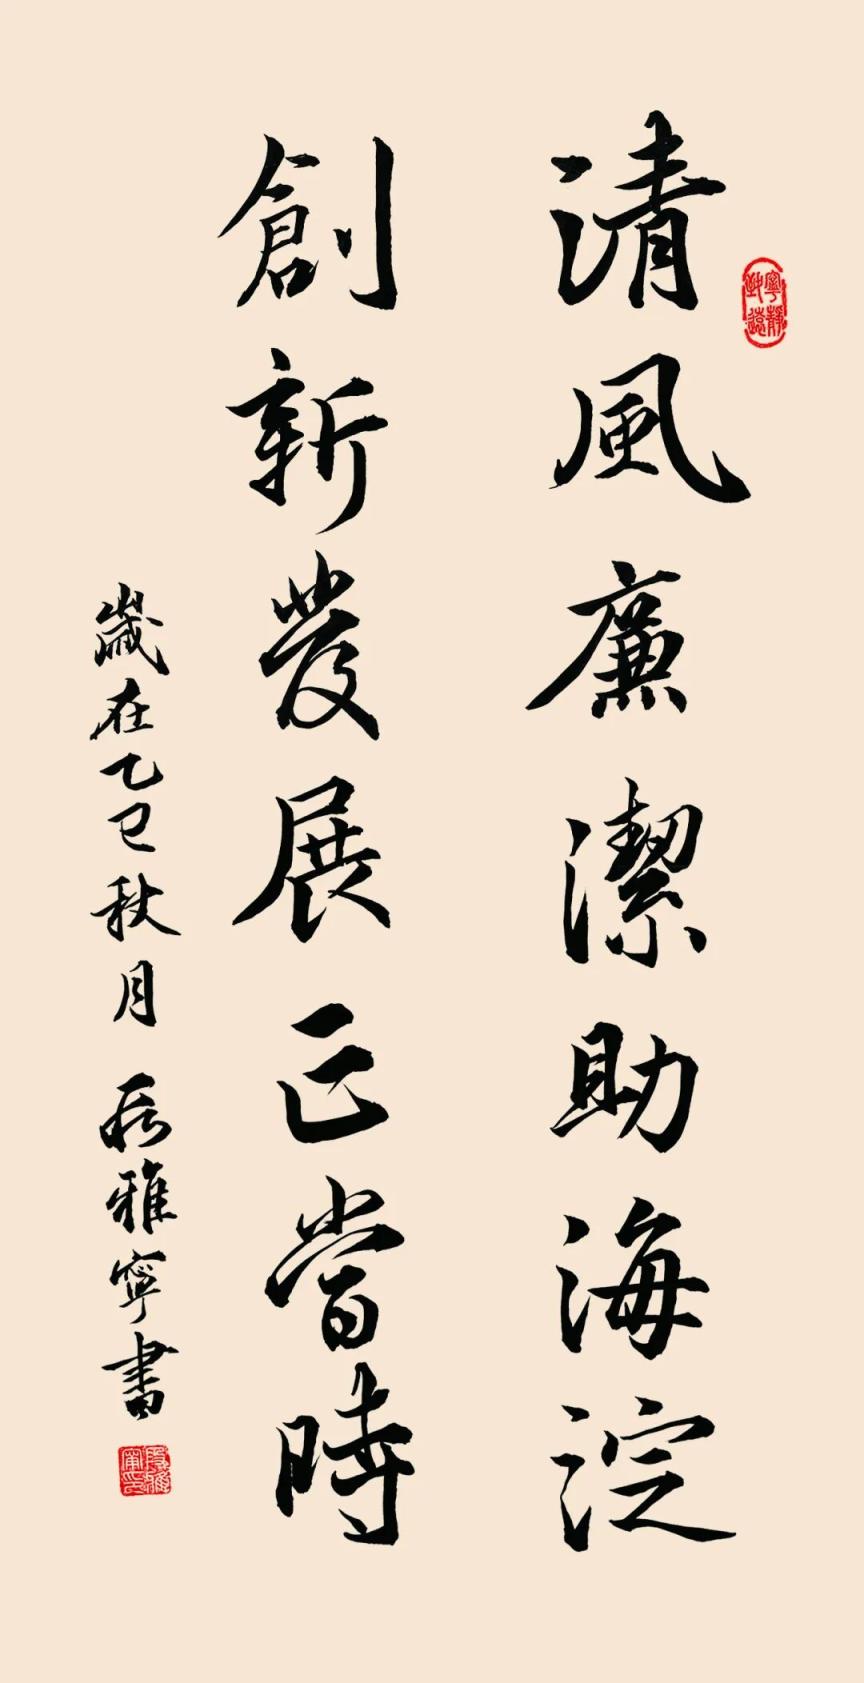 寧靜致遠
清風廉潔助海淀
創新發展正當時
歲在乙巳秋月 雅寧書